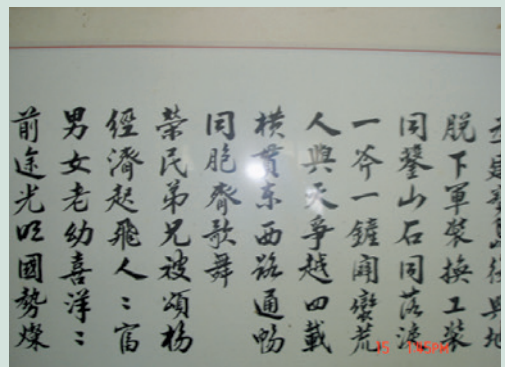 脱下軍裝換工裝
同鑿山石同落淚
一斧一鐘闢蠻荒
人與天爭越四載
橫貫东西路通暢
同胞齊歌舞
榮民弟兄被頌揚
經濟起飛人〻富
男女老幼喜洋〻
前途光明國勢燦